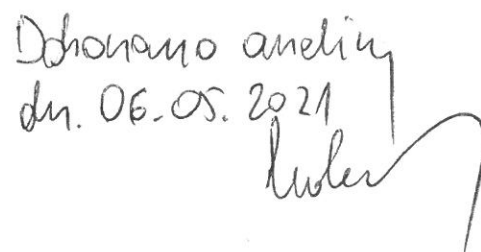 Dokonano analizy
dn. 06.05.2021